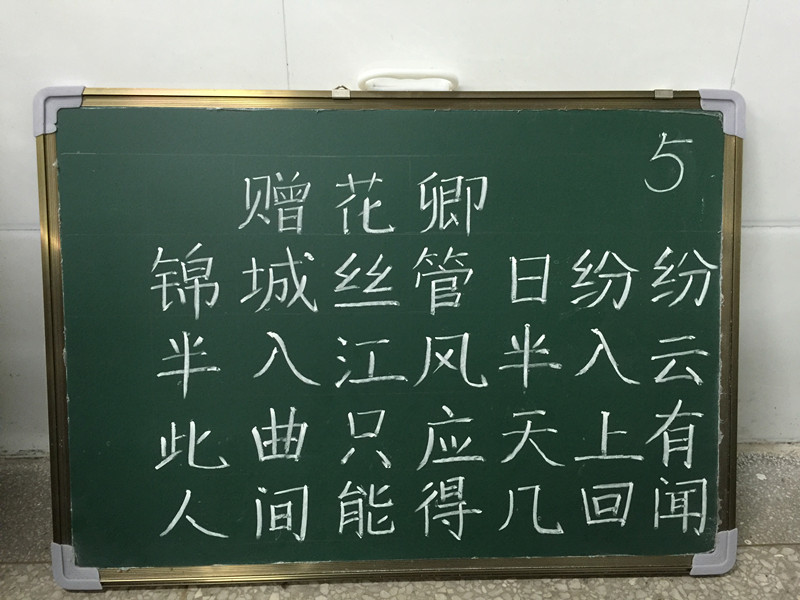 5
赠花卿
锦城丝管日纷纷
半入江风半入云
此曲只应天上有
人间能得几回闻